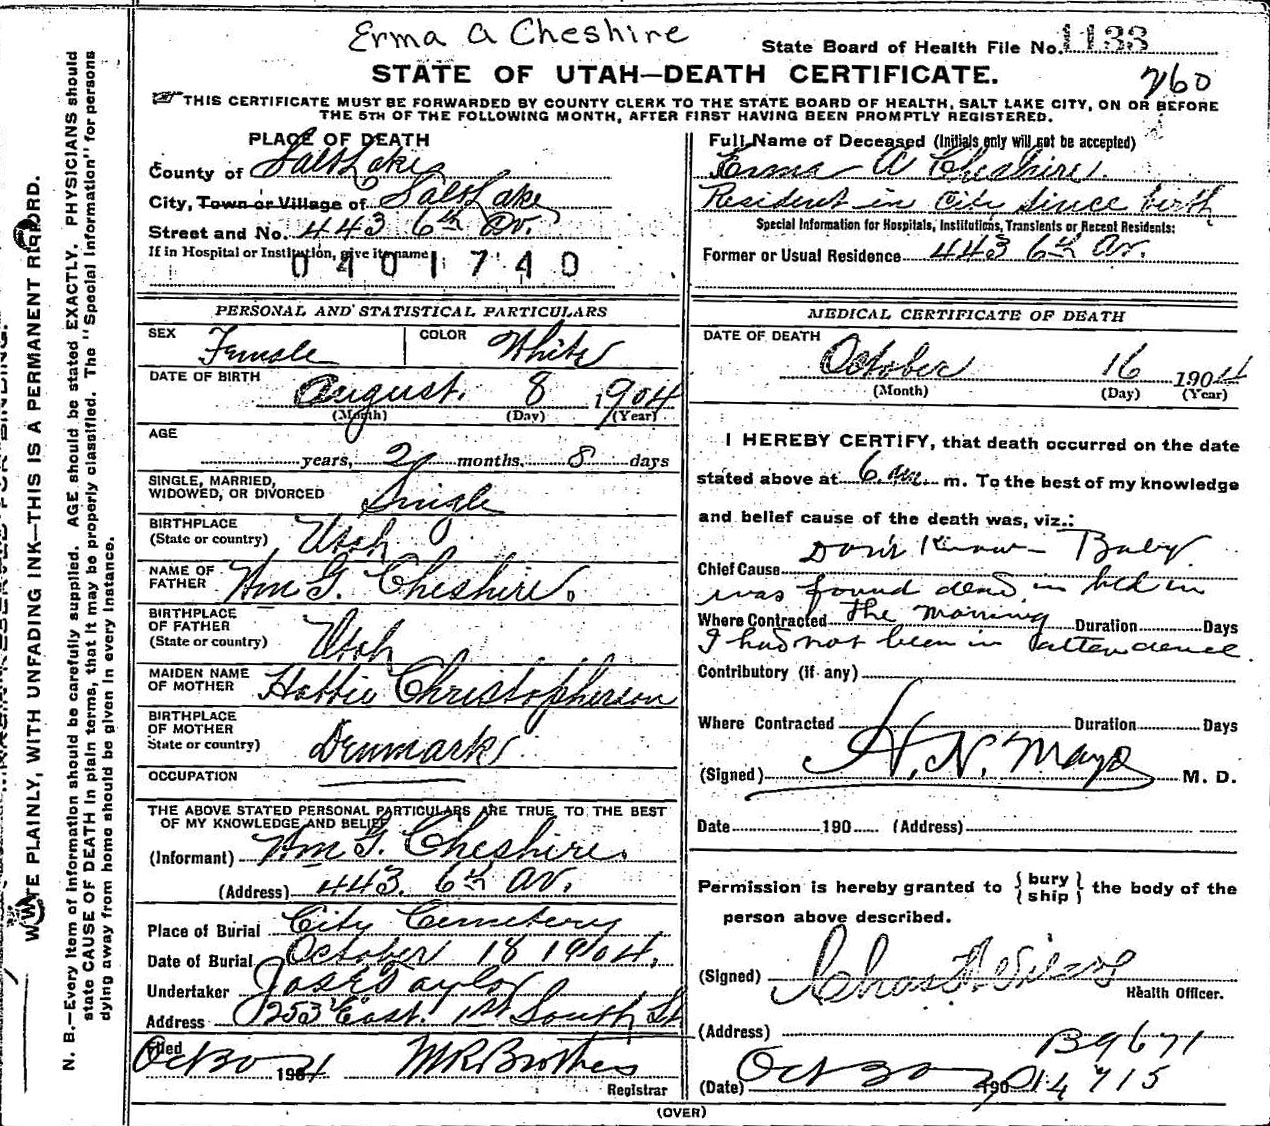 Erma A Cheshire
State Board of Health File No. 1133
STATE OF UTAH—DEATH CERTIFICATE.
260
THIS CERTIFICATE MUST BE FORWARDED BY COUNTY CLERK TO THE STATE BOARD OF HEALTH, SALT LAKE CITY, ON OR BEFORE
THE 5TH OF THE FOLLOWING MONTH, AFTER FIRST HAVING BEEN PROMPTLY REGISTERED.
PLACE OF DEATH
County of Salt Lake
City, Town or Village of Salt Lake
Street and No. 443 6th Av.
If in Hospital or Institution, give its name
0401740
Full Name of Deceased (Initials only will not be accepted)
Erma A Cheshire.
Resident in City since birth
Special Information for Hospitals, Institutions, Transients or Recent Residents:
Former or Usual Residence 443 6th Av.
PERSONAL AND STATISTICAL PARTICULARS
SEX Female COLOR White
DATE OF BIRTH August. 8 1904
(Month) (Day) (Year)
AGE
years, 2 months, 8 days
SINGLE, MARRIED,
WIDOWED, OR DIVORCED Single
BIRTHPLACE
(State or country) Utah
NAME OF
FATHER Wm G. Cheshire.
BIRTHPLACE
OF FATHER
(State or country) Utah
MAIDEN NAME
OF MOTHER Hattie Christopherson
BIRTHPLACE
OF MOTHER
State or country) Denmark
OCCUPATION
THE ABOVE STATED PERSONAL PARTICULARS ARE TRUE TO THE BEST
OF MY KNOWLEDGE AND BELIEF
(Informant) Wm G. Cheshire.
(Address) 443. 6th Av.
Place of Burial City Cemetery
Date of Burial October 18 1904.
Undertaker Jos E Taylor
Address 253 East. 1st South St
Filed
Oct 30 1904 Registrar
MEDICAL CERTIFICATE OF DEATH
DATE OF DEATH
October 16 1904
(Month) (Day) (Year)
I HEREBY CERTIFY, that death occurred on the date
stated above at 6 am m. To the best of my knowledge
and belief cause of the death was, viz.:
Don't Know - Baby
Chief Cause
was found dead in bed in
Where Contracted the morning Duration Days
I had not been in attendence.
Contributory (if any)
Where Contracted Duration Days
(Signed) H. N. Mayo M. D.
Date 190 (Address)
Permission is hereby granted to { bury / ship } the body of the
person above described.
(Signed) Health Officer.
(Address)
B9671
(Date) Oct 30 190
14715
(OVER)
WRITE PLAINLY, WITH UNFADING INK—THIS IS A PERMANENT RECORD.
N. B.—Every item of information should be carefully supplied. AGE should be stated EXACTLY. PHYSICIANS should
state CAUSE OF DEATH in plain terms, that it may be properly classified. The "Special Information" for persons
dying away from home should be given in every instance.